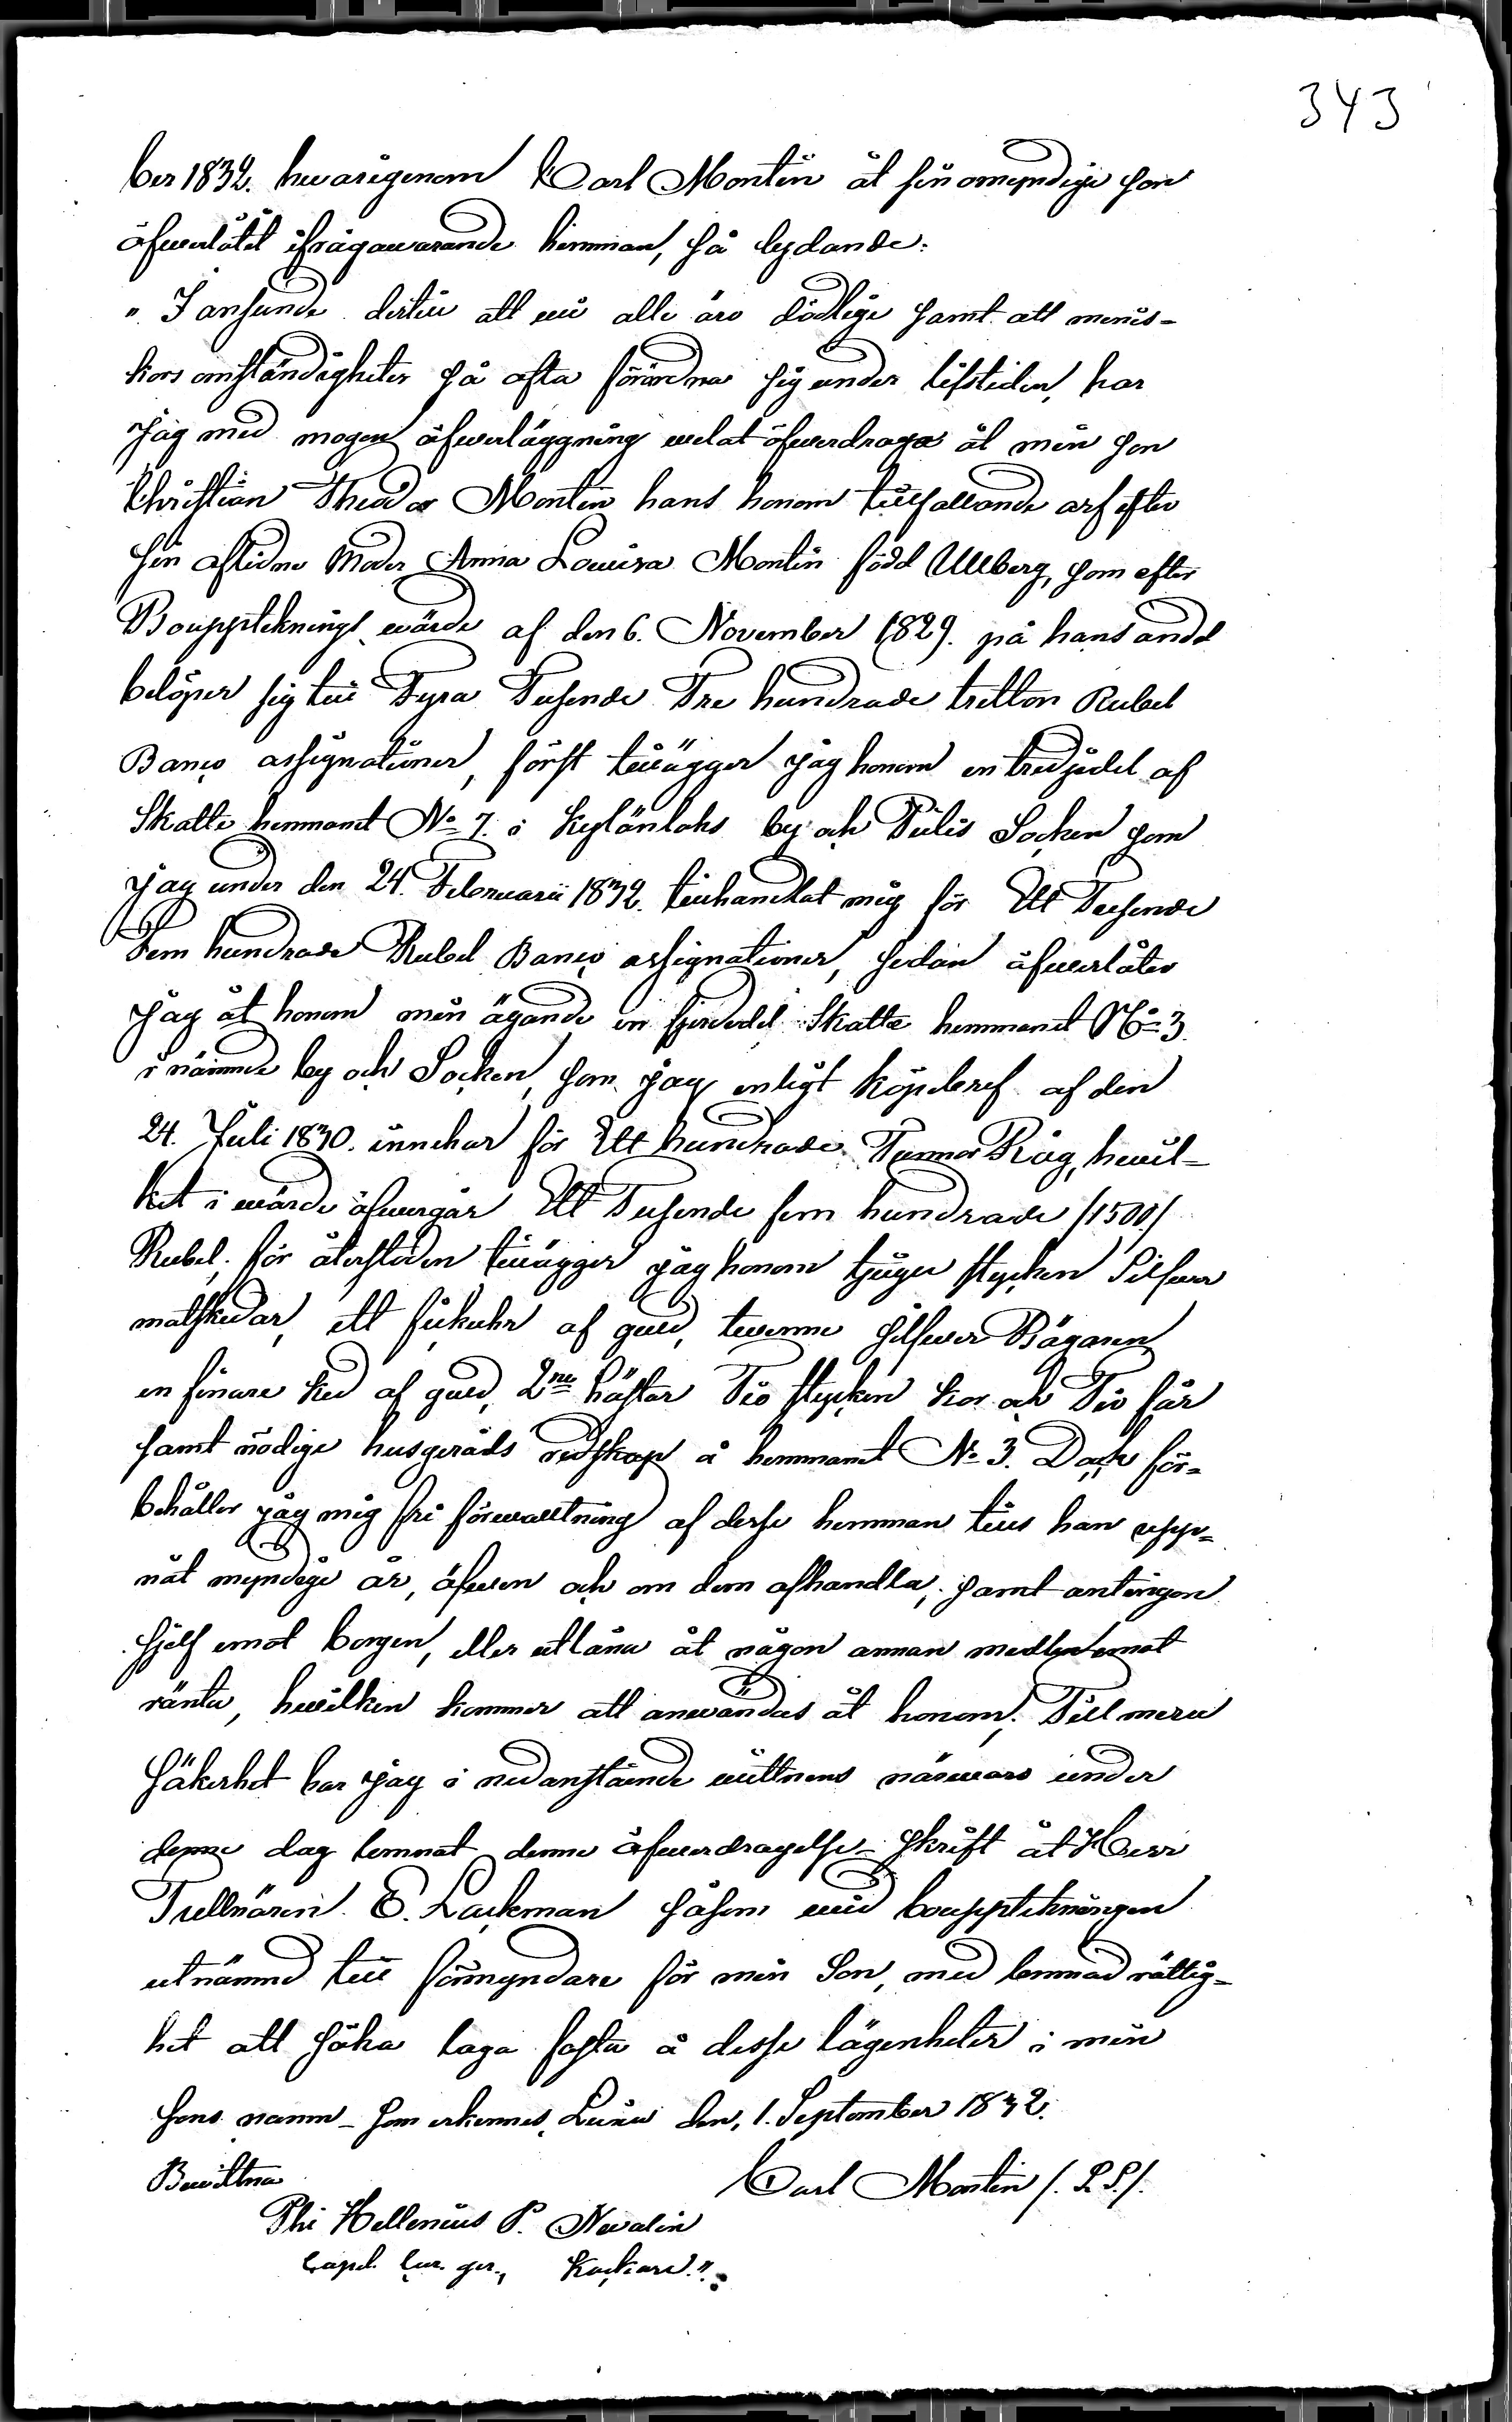 343
ber 1832. hwarigenom Carl Montin åt sin omyndige son
öfwerlåtit ifrågawarande hemman, så lydande:
"I anseende dertill att wi alle äro dödlige samt att menis-
kors omständigheter så ofta förändra sig under lifstiden, har
jag med mogen öfwerläggning welat öfwerdraga åt min son
Christian Theodor Montin hans honom tillfallande arf efter
sin aflidne Moder Anna Louisa Montin född Ullberg, som efter
Bouppteknings wärde af den 6. November 1829. på hans andel
belöper sig till Fyra Tusende Tre hundrade tretton Rubel
Banco assignationer, först tillägger jag honom en tredjedel af
Skatte hemmanet No 7. i Kylänlahs by och Pielis Socken som
jag under den 24. Februarii 1832. tillhandlat mig för Ett Tusende
Fem hundrade Rubel Banco assignationer, sedan öfwerlåter
jag åt honom min ägande en fjerdedel Skatte hemmanet No 3.
i nämnde by och Socken, som jag enligt köpebref af den
24. Juli 1830. innehar för Ett hundrade Tunnor Råg, hwil-
ket i wärde öfwergår Ett Tusende fem hundrade /1500/
Rubel. för återstoden tillägger jag honom tjugu stycken Silfwer
matskedar, ett fickuhr af guld, twenne silfwer Bägaren
en finare ked af guld, 2ne hästar Tio stycken kor och Tio får
samt nödige husgeråds redskap å hemmanet No 3. Dock för-
behåller jag mig fri förwaltning af desse hemman tills han upp-
nåt myndige år, äfwen och om dem afhandla, samt antingen
sjelf emot borgen, eller utlåna åt någon annan medlen emot
ränta, hwilken kommer att anwändas åt honom. Till mera
Säkerhet har jag i nedanstående wittnens närwaro under
denne dag lemnat denne öfwerdragelse-skrift åt Herr
Tullnären E. Lackman såsom wid bouppteckningen
utnämnd till förmyndare för min Son, med lemnad rättig-
het att söka laga fasta å desse lägenheter i min
sons namn - som erkennes, den, 1. September 1832.
Bewittna
Carl Montin /. L. S./.
Hellenius P. Nevalin
Capel. Cur. ger.,